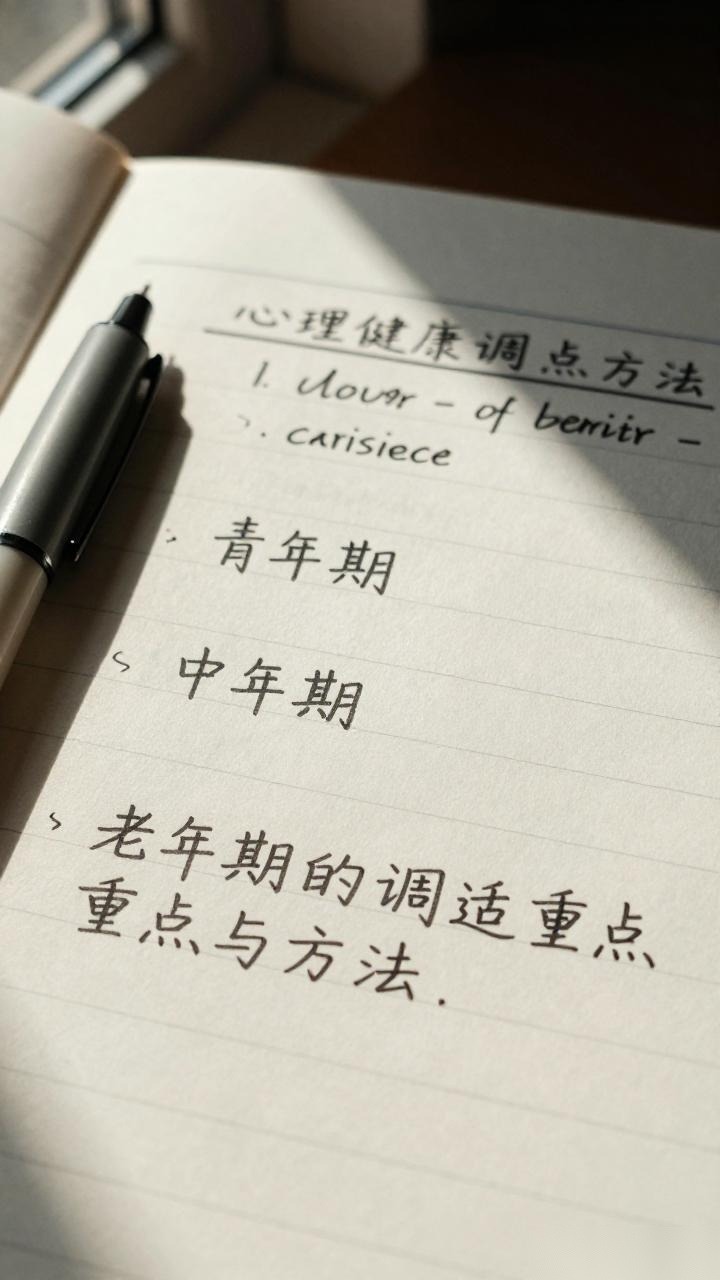 心理健康调点方法
1. Uouər - of bemitr -
. carisiece
青年期
中年期
老年期的调适重点
重点与方法.